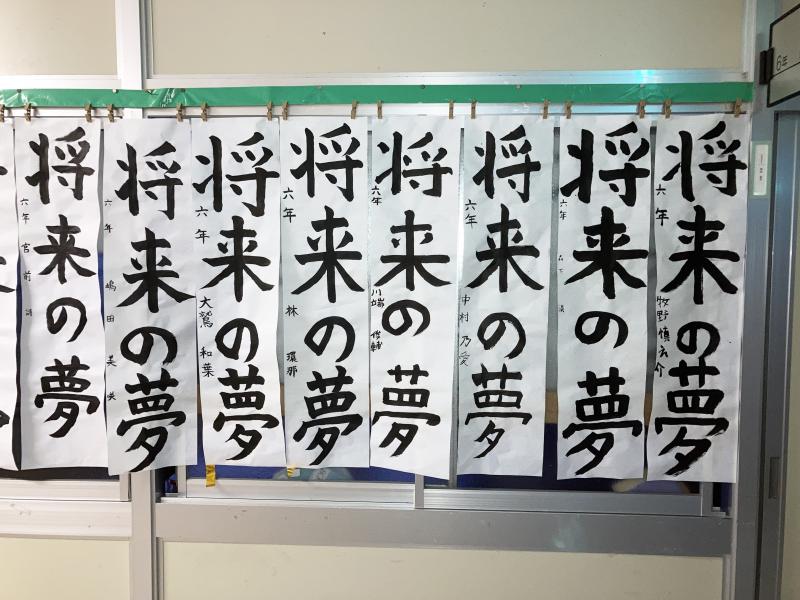 6年
将来の夢
六年 牧野慎云介
将来の夢
六年 山下
将来の夢
六年 中村乃愛
将来の夢
六年 川端 俊輔
将来の夢
六年 林 環那
将来の夢
六年 大鷲 和葉
将来の夢
六年 嶋田 美咲
将来の夢
六年 宮前 詩